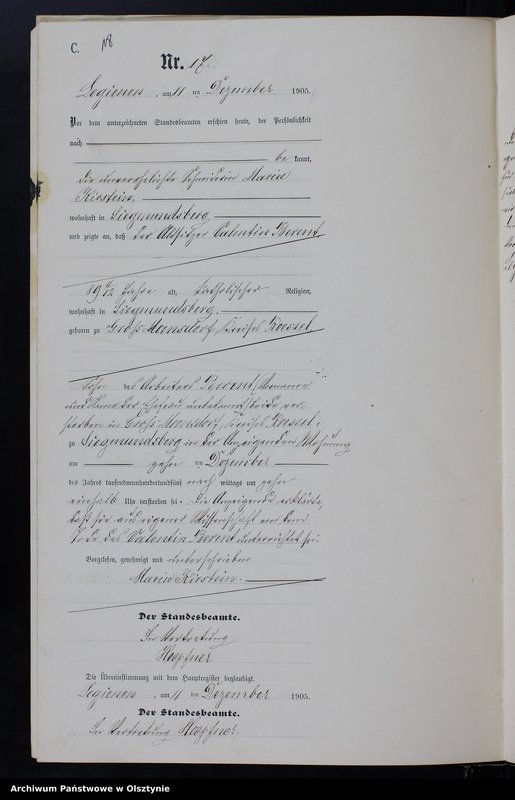 C.
Nr. 17.
Legienen, am 11 ten Dezember 1905.
Vor dem unterzeichneten Standesbeamten erschien heute, der Persönlichkeit
nach
be kannt,
die unverehelichte Schneiderin Maria
Kirstein,
wohnhaft in Siegmundsberg,
und zeigte an, daß der Altsitzer Valentin Berent,
89 1/2 Jahre alt, katholischer Religion,
wohnhaft in Siegmundsberg,
geboren zu Groß Moensdorf, Kreises Roessel,
Sohn des Arbeiters Berent, Vorname
und Name der Ehefrau unbekannt, beide ver-
storben in Groß Moensdorf, Kreises Roessel,
zu Siegmundsberg in der Anzeigenden Wohnung
am zehn ten Dezember
des Jahres tausendneunhundertfünf nach mittags um zehn
einhalb Uhr verstorben sei. Die Anzeigende erklärte,
daß sie aus eigener Wissenschaft von dem
Tode des Valentin Berent unterrichtet sei.
Vorgelesen, genehmigt und unterschrieben
Maria Kirstein.
Der Standesbeamte.
In Vertretung
Hoepfner
Die Übereinstimmung mit dem Hauptregister beglaubigt.
Legienen, am 11 ten Dezember 1905.
Der Standesbeamte.
In Vertretung Hoepfner.
Archiwum Państwowe w Olsztynie